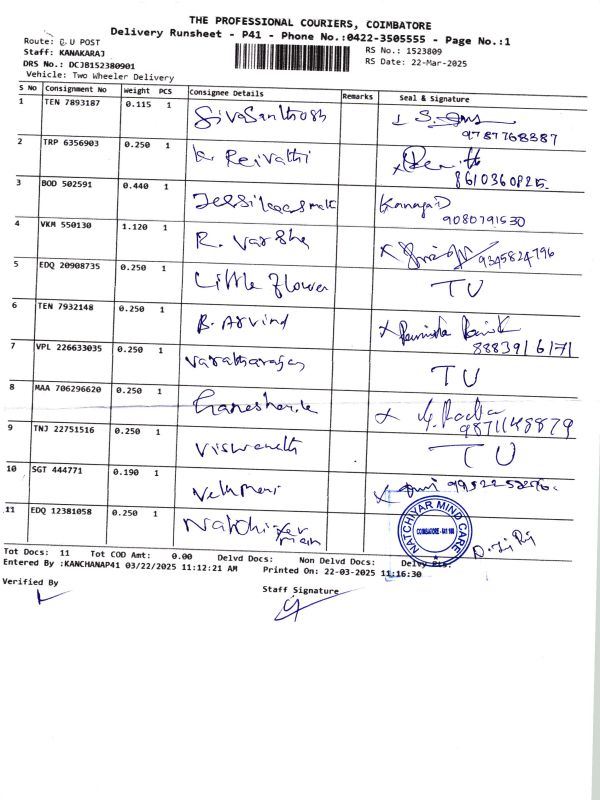 THE PROFESSIONAL COURIERS, COIMBATORE
Delivery Runsheet - P41 - Phone No.:0422-3505555 - Page No.:1
Route: G U POST
Staff: KANAKARAJ
RS No.: 1523809
DRS No.: DCJB152380901
RS Date: 22-Mar-2025
Vehicle: Two Wheeler Delivery
S No Consignment No Weight PCS Consignee Details Remarks Seal & Signature
1 TEN 7893187 0.115 1 SivaSanthosh 9787768387
2 TRP 6356903 0.250 1 K. Reivathi 8610360825
3 BOD 502591 0.440 1 Kannagi 9080791530
4 VKM 550130 1.120 1 R. Varsha 9345824796
5 EDQ 20908735 0.250 1 Little flower TU
6 TEN 7932148 0.250 1 B. Arvind 8883916171
7 VPL 226633035 0.250 1 Varatharajan TU
8 MAA 706296620 0.250 1 9871148879
9 TNJ 22751516 0.250 1 Viswanath TU
10 SGT 444771 0.190 1 Velumani
11 EDQ 12381058 0.250 1
NATCHIYAR MIND CARE
Tot Docs: 11 Tot COD Amt: 0.00 Delvd Docs: Non Delvd Docs: Delvy Pts:
Entered By :KANCHANAP41 03/22/2025 11:12:21 AM Printed On: 22-03-2025 11:16:30
Verified By
Staff Signature